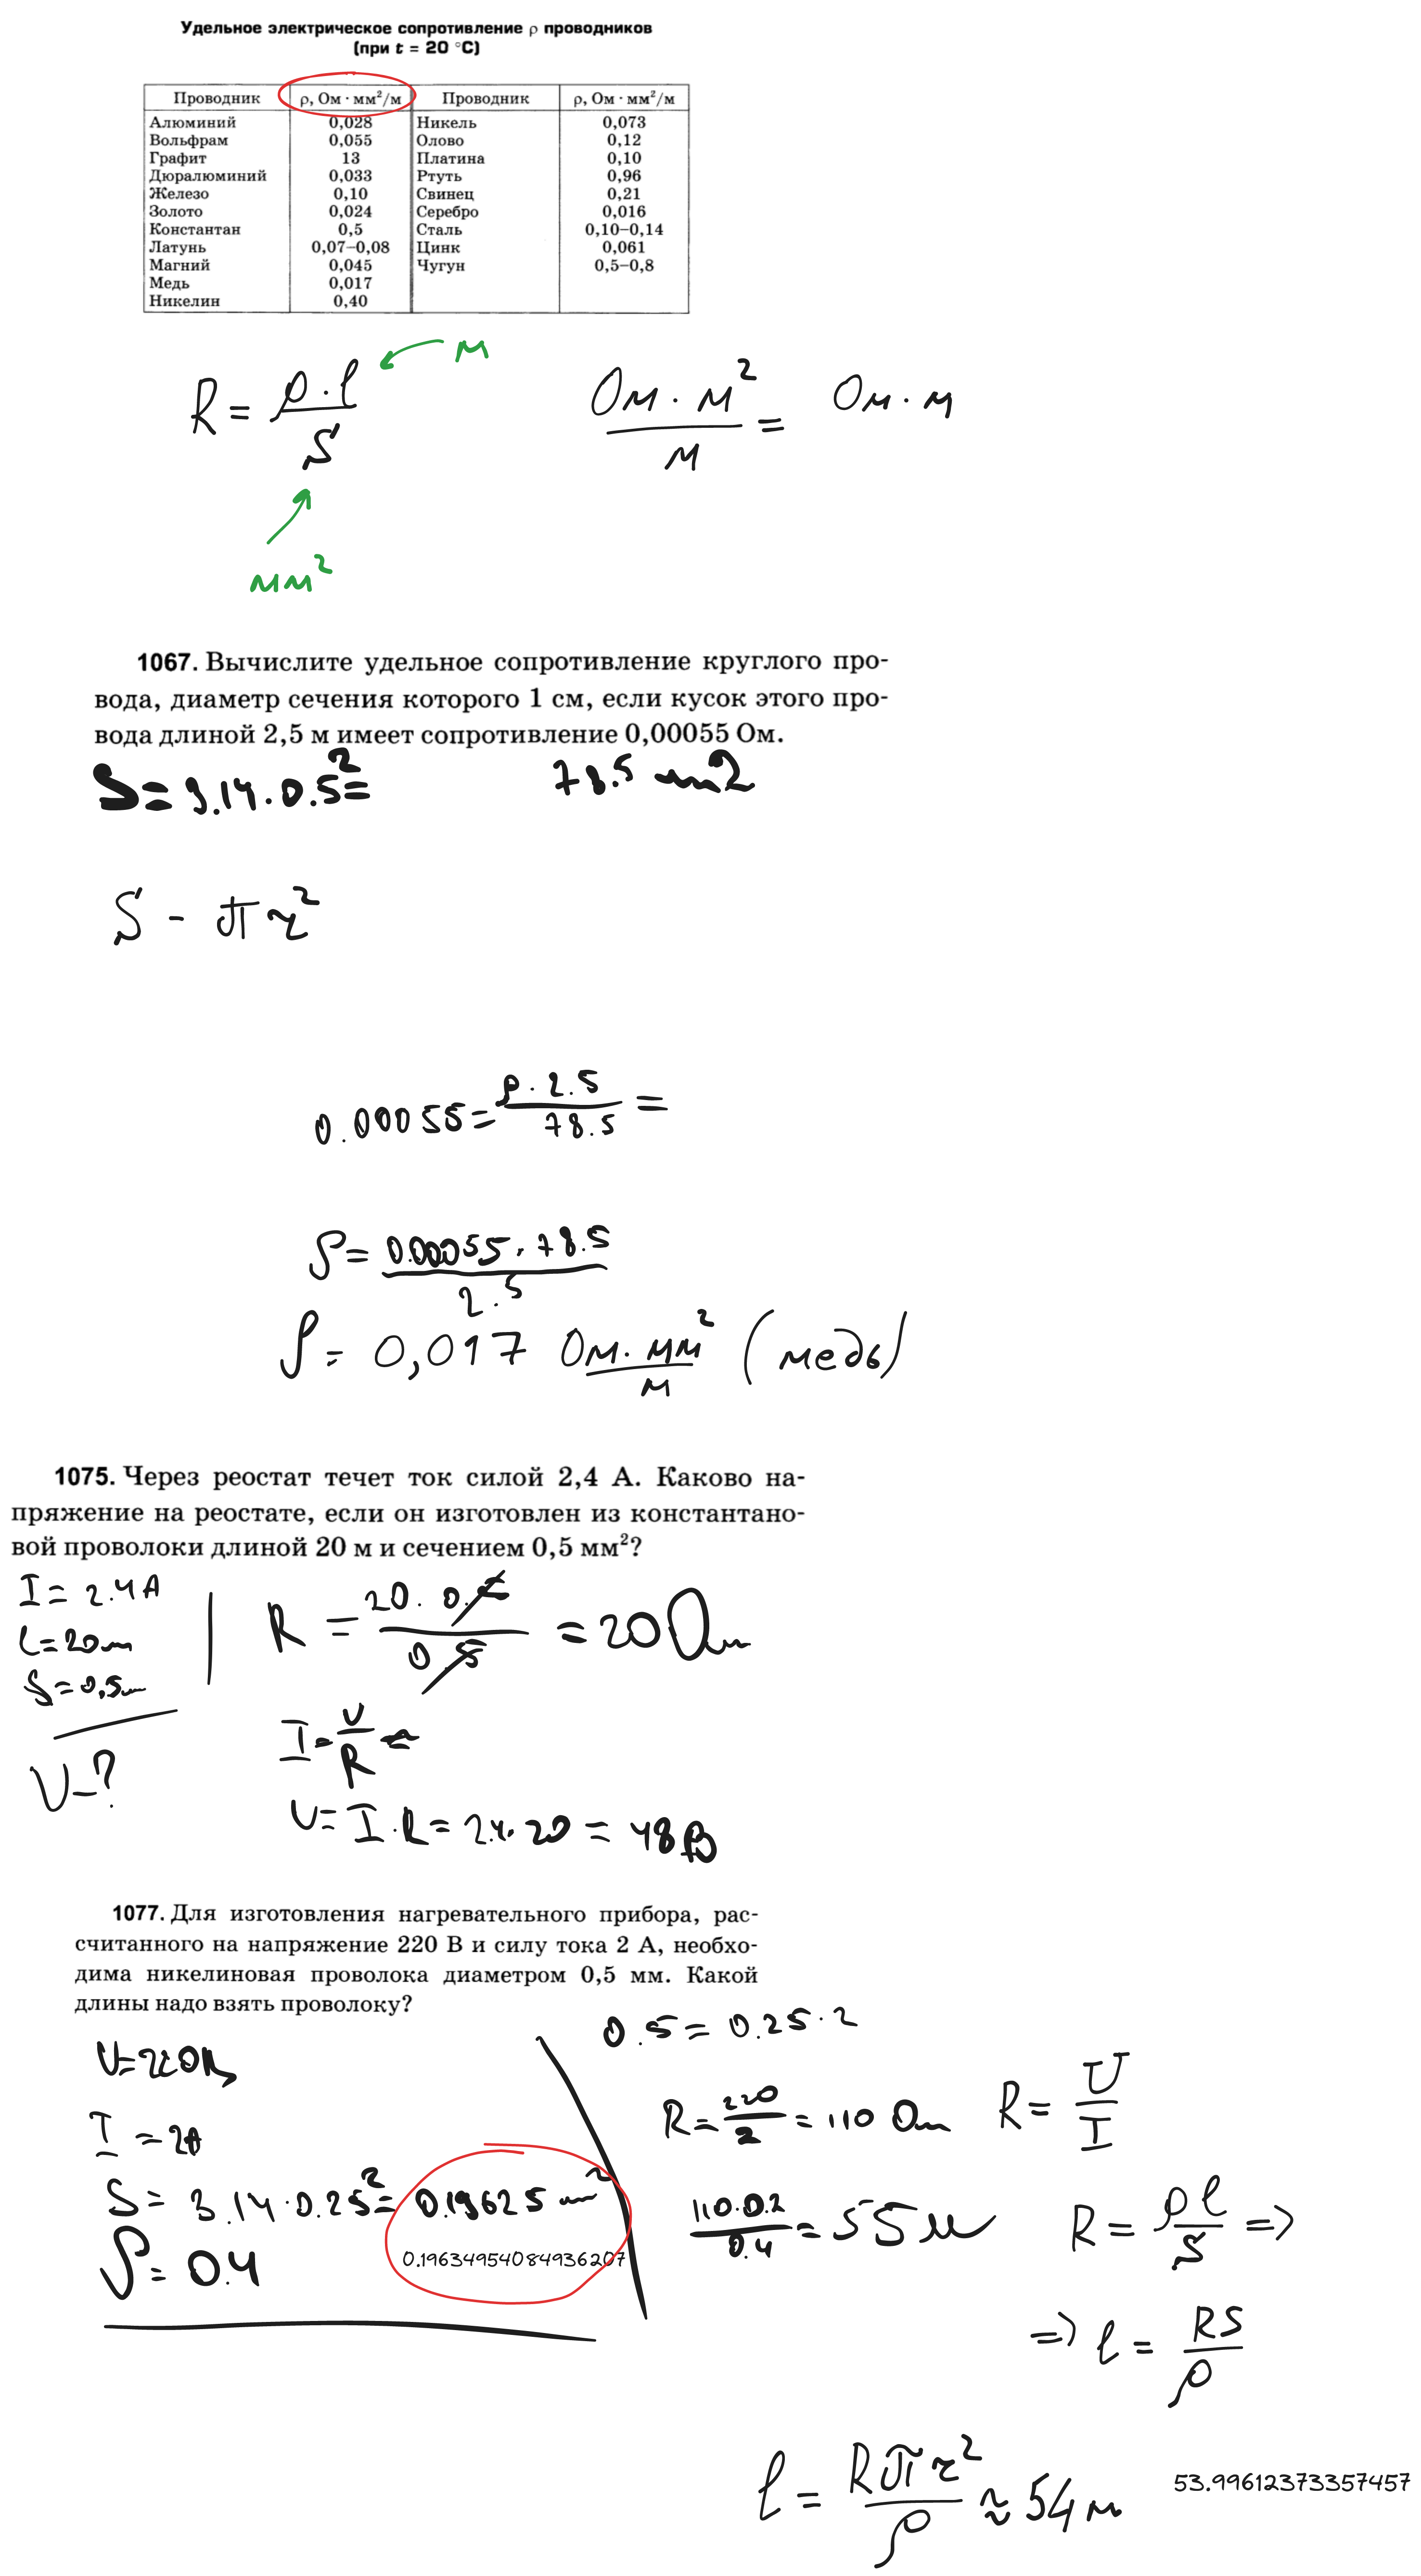 Удельное электрическое сопротивление ρ проводников
(при t = 20 °C)
Проводник ρ, Ом · мм²/м Проводник ρ, Ом · мм²/м
Алюминий 0,028 Никель 0,073
Вольфрам 0,055 Олово 0,12
Графит 13 Платина 0,10
Дюралюминий 0,033 Ртуть 0,96
Железо 0,10 Свинец 0,21
Золото 0,024 Серебро 0,016
Константан 0,5 Сталь 0,10–0,14
Латунь 0,07–0,08 Цинк 0,061
Магний 0,045 Чугун 0,5–0,8
Медь 0,017
Никелин 0,40
м
R = ρ · l / S
Ом · м² / м = Ом · м
мм²
1067. Вычислите удельное сопротивление круглого про-
вода, диаметр сечения которого 1 см, если кусок этого про-
вода длиной 2,5 м имеет сопротивление 0,00055 Ом.
S = 3.14 · 0.5² = 78.5 мм2
S - πr²
0.00055 = ρ · 2.5 / 78.5 =
ρ = 0.00055 · 78.5 / 2.5
ρ = 0,017 Ом · мм² / м (медь)
1075. Через реостат течет ток силой 2,4 А. Каково на-
пряжение на реостате, если он изготовлен из константано-
вой проволоки длиной 20 м и сечением 0,5 мм²?
I = 2.4 A
l = 20 m
S = 0,5 м
U - ?
R = 20 · 0.5 / 0.5 = 20 Ом
I = U / R =
U = I · R = 2.4 · 20 = 48 В
1077. Для изготовления нагревательного прибора, рас-
считанного на напряжение 220 В и силу тока 2 А, необхо-
дима никелиновая проволока диаметром 0,5 мм. Какой
длины надо взять проволоку?
U = 220 В
I = 2A
S = 3.14 · 0.25² = 0.19625 мм²
0.19634954084936207
ρ = 0.4
0.5 = 0.25 · 2
R = 220 / 2 = 110 Ом
R = U / I
110 · 0.2 / 0.4 = 55 м
R = ρl / S =>
=> l = RS / ρ
l = Rπr² / ρ ≈ 54 м
53.99612373357457